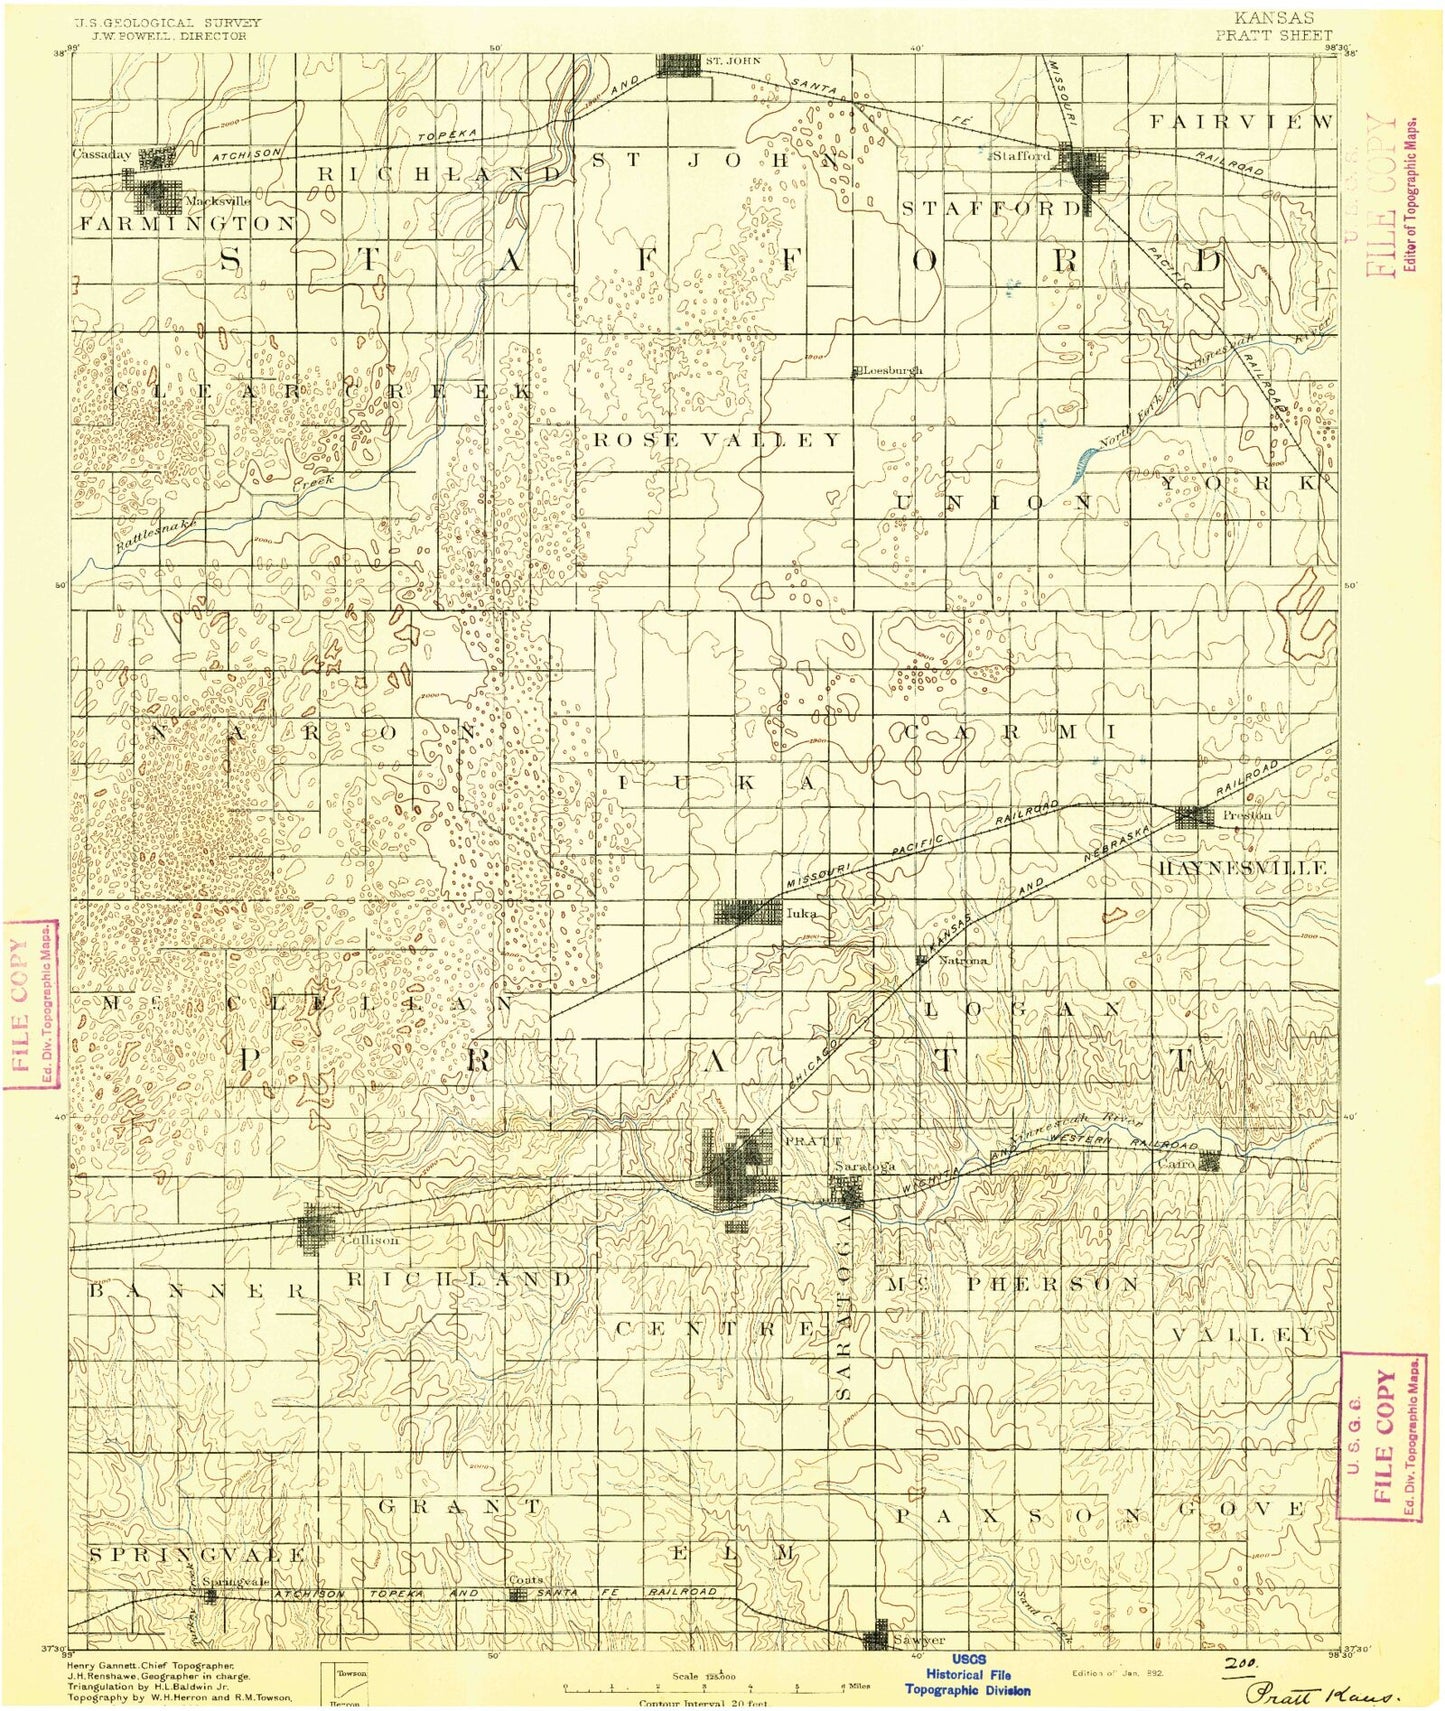 U.S.GEOLOGICAL SURVEY
J.W.POWELL, DIRECTOR
KANSAS
PRATT SHEET
99°
38°
50'
40'
98°30'
38°
ST. JOHN
AND
SANTA
FE
MISSOURI
FAIRVIEW
TOPEKA
ATCHISON
Cassaday
RICHLAND
ST JOHN
Stafford
RAILROAD
2000
1900
Macksville
FARMINGTON
STAFFORD
STAFFORD
PACIFIC
RAILROAD
1800
Loesburgh
North Fork Ninnescah River
CLEAR CREEK
ROSE VALLEY
YORK
UNION
Rattlesnake Creek
2000
50'
50'
2000
1900
NARON
CARMI
IUKA
RAILROAD
Preston
MISSOURI PACIFIC RAILROAD
HAYNESVILLE
Iuka
CHICAGO KANSAS AND NEBRASKA
Natrona
1900
Mc CLELLAN
LOGAN
PRATT
40'
40'
PRATT
Ninnescah River
Saratoga
WICHITA AND WESTERN RAILROAD
Cairo
Cullison
BANNER
RICHLAND
Mc PHERSON
CENTRE
SARATOGA
VALLEY
2000
GRANT
PAXSON
GOVE
SPRINGVALE
ELM
Springvale
Coats
ATCHISON TOPEKA AND SANTA FE RAILROAD
Turkey Creek
Sand Creek
Sawyer
37°30'
99°
50'
40'
98°30'
37°30'
FILE COPY
Editor of Topographic Maps.
FILE COPY
Ed. Div. Topographic Maps.
U. S. G. S.
FILE COPY
Ed. Div. Topographic Maps.
Henry Gannett, Chief Topographer.
J.H.Renshawe, Geographer in charge.
Triangulation by H.L.Baldwin Jr.
Topography by W.H.Herron and R.M.Towson.
Towson
Herron
Scale 1/125000
0 1 2 3 4 5 6 Miles
Contour Interval 20 feet
USGS
Historical File
Topographic Division
Edition of Jan. 892.
200.
Pratt Kans.